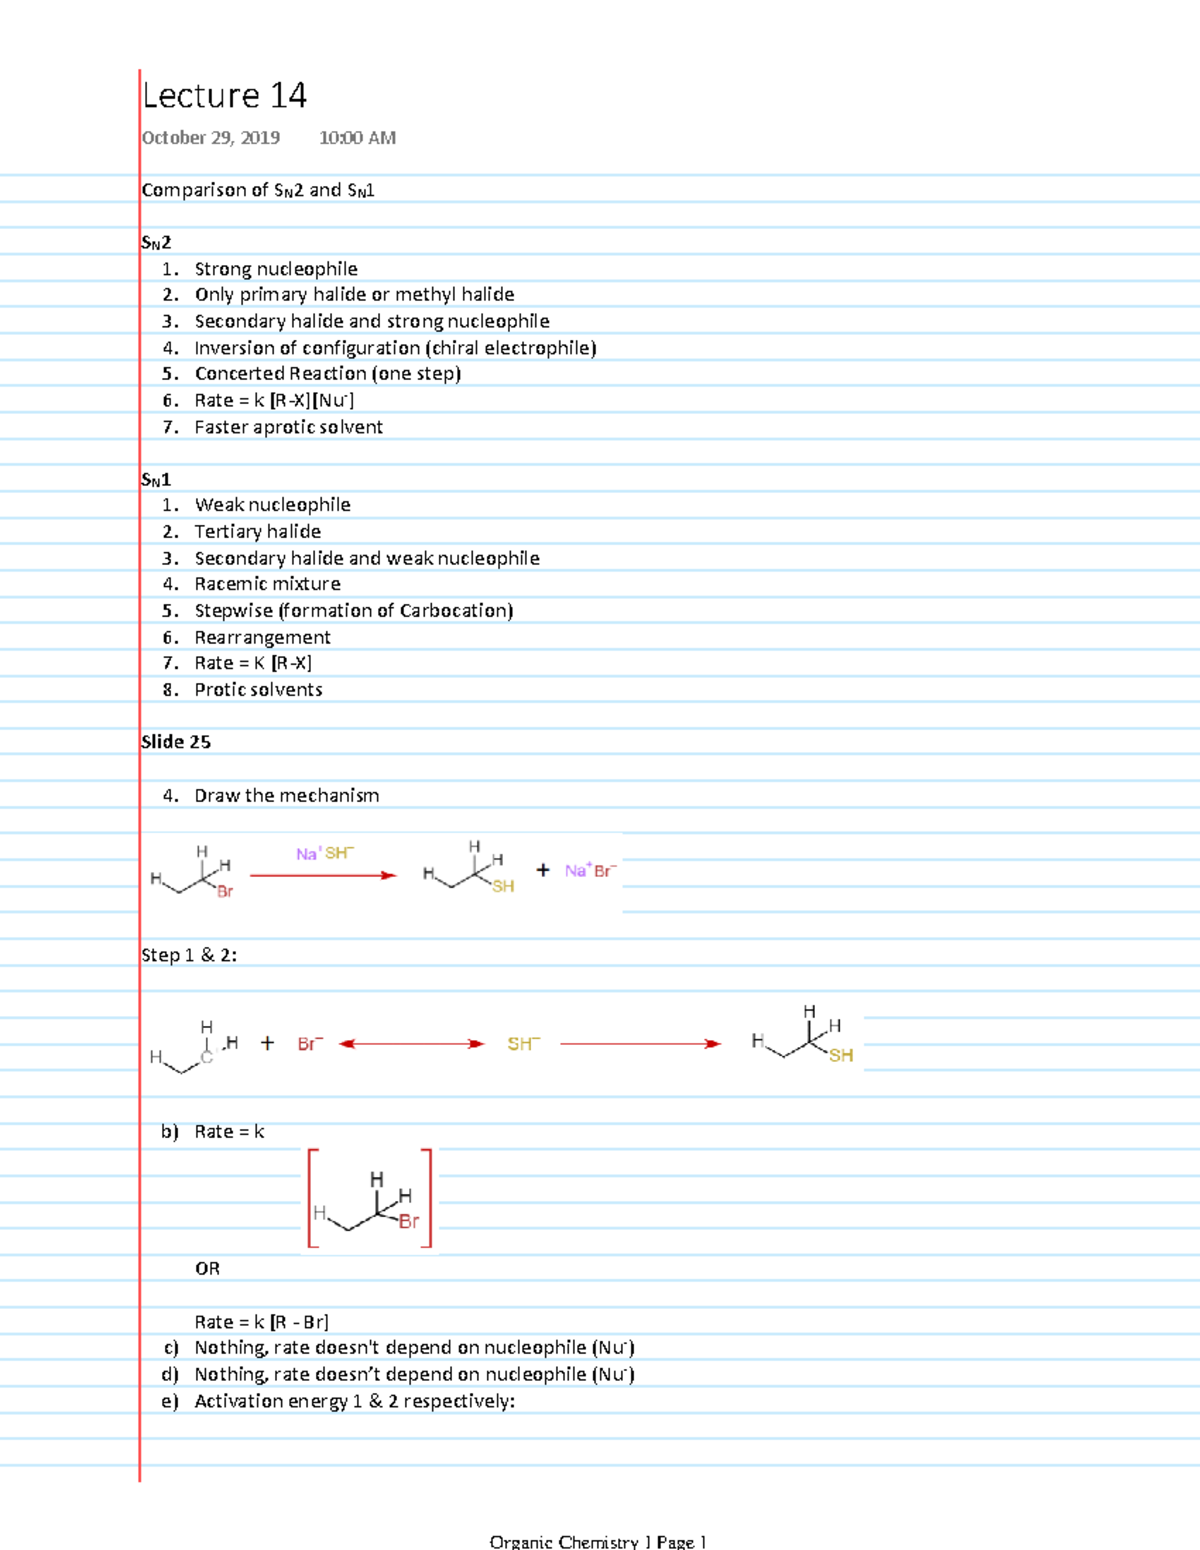 Lecture 14
October 29, 2019 10:00 AM
Comparison of SN2 and SN1
SN2
1. Strong nucleophile
2. Only primary halide or methyl halide
3. Secondary halide and strong nucleophile
4. Inversion of configuration (chiral electrophile)
5. Concerted Reaction (one step)
6. Rate = k [R-X][Nu-]
7. Faster aprotic solvent
SN1
1. Weak nucleophile
2. Tertiary halide
3. Secondary halide and weak nucleophile
4. Racemic mixture
5. Stepwise (formation of Carbocation)
6. Rearrangement
7. Rate = K [R-X]
8. Protic solvents
Slide 25
4. Draw the mechanism
H H H Br Na+SH− H H H SH + Na+Br−
Step 1 & 2:
H H H C + Br− SH− H H H SH
b) Rate = k
H H H Br
OR
Rate = k [R - Br]
c) Nothing, rate doesn't depend on nucleophile (Nu-)
d) Nothing, rate doesn’t depend on nucleophile (Nu-)
e) Activation energy 1 & 2 respectively:
Organic Chemistry I Page 1